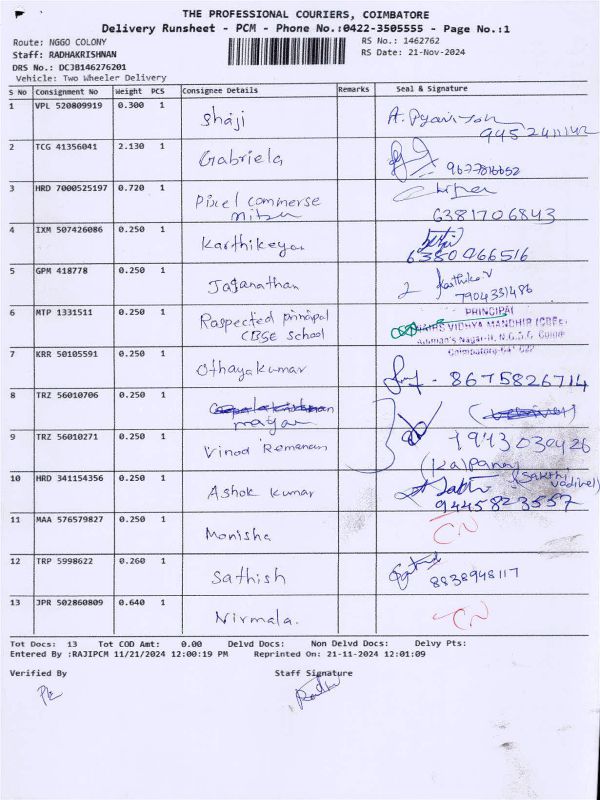 THE PROFESSIONAL COURIERS, COIMBATORE
Delivery Runsheet - PCM - Phone No.:0422-3505555 - Page No.:1
Route: NGGO COLONY
RS No.: 1462762
Staff: RADHAKRISHNAN
RS Date: 21-Nov-2024
DRS No.: DCJB146276201
Vehicle: Two Wheeler Delivery
S No Consignment No Weight PCS Consignee Details Remarks Seal & Signature
1 VPL 520809919 0.300 1 Shaji
2 TCG 41356041 2.130 1 Gabriela
3 HRD 7000525197 0.720 1 Pixel commerse
6381706843
4 IXM 507426086 0.250 1 Karthikeyan
6380966516
5 GPM 418778 0.250 1 Jaganathan Karthika V
7904331486
6 MTP 1331511 0.250 1 Raspected principal PRINCIPAL
CBSE school VIDHYA MANDHIR (CBSE)
Coimbatore-641 022
7 KRR 50105591 0.250 1 Othayakumar 8675826714
8 TRZ 56010706 0.250 1
9 TRZ 56010271 0.250 1 Vinod
10 HRD 341154356 0.250 1 Ashok Kumar Sakthi (Sakthi
vadivel)
9445823557
11 MAA 576579827 0.250 1 Monisha CN
12 TRP 5998622 0.260 1 Sathish 8838948117
13 JPR 502860809 0.640 1 Nirmala. CN
Tot Docs: 13 Tot COD Amt: 0.00 Delvd Docs: Non Delvd Docs: Delvy Pts:
Entered By :RAJIPCM 11/21/2024 12:00:19 PM Reprinted On: 21-11-2024 12:01:09
Verified By Staff Signature